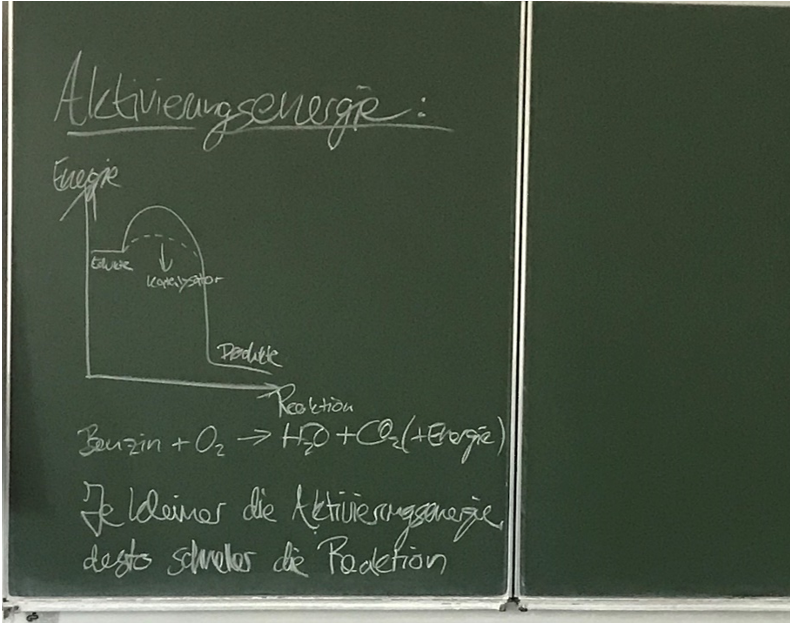 Aktivierungsenergie:
Energie
Edukte
Katalysator
Produkte
Reaktion
Benzin + O₂ → H₂O + CO₂ (+Energie)
Je kleiner die Aktivierungsenergie,
desto schneller die Reaktion